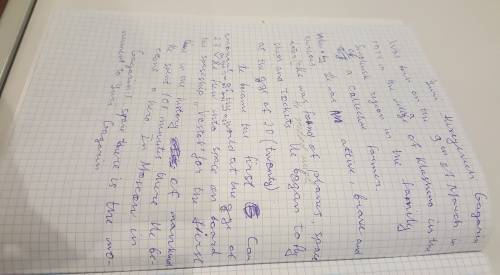 Yuri Alexeyevich Gagarin
was born on the 9 of March in
1934 in the village of Klushino in the
Smolensk region in the family
of a collective farmer.
He was active, brave and
curious
he was fond of planes, space
ships and rockets. He began to fly
at the age of 20 (twenty)
He became the first Cos
monaut in the world at the age of
27. He flew into space on board
the spaceship "Vostok" for the first
time in the history of mankind
He spent 108 minutes there. He be-
came a hero. In Moscow in
Gagarin's space there is the mo-
nument to Yuri Gagarin